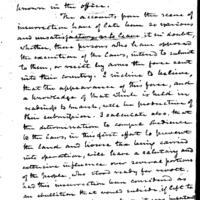 known in the office.
The accounts, from the scene of
insurrection have of late been so various
and unsatisfactory as to leave it in doubt,
whether, those persons who have opposed
the execution of the laws, intend to submit
to them, or resist by arms the force sent
into their country. I incline to believe,
that the appearance of this force, and
a knowledge of that which is held in
readiness to march, will be productive of
their submission. I calculate also, that
the determination to compel obedience
to the laws, in this first effort to prevent
the land and house tax being carried
into operation, will have a salutary and
extensive influence over several portions
of the people, who stood ready for revolt,
had this insurrection been considered as
an ebullition that would subside if left to